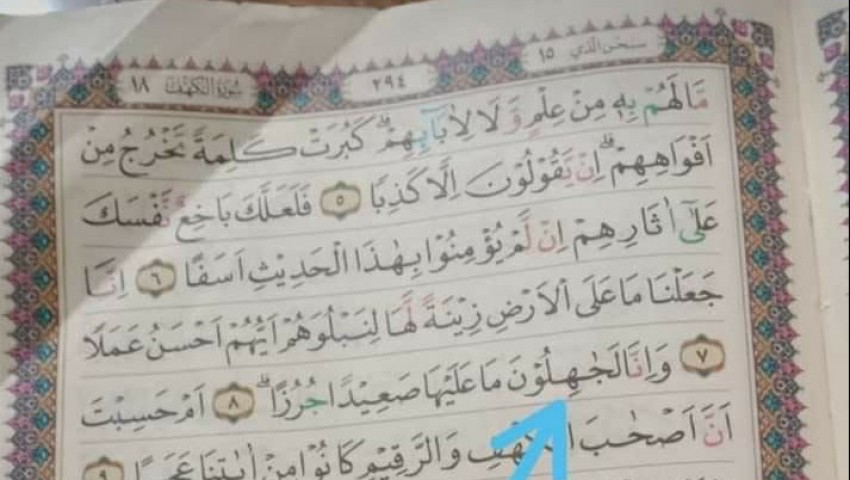 سبحن الذي ١٥
٢٩٤
سورة الكهف ١٨
مَّا لَهُمْ بِهٖ مِنْ عِلْمٍ وَّلَا لِاٰبَاۤىِٕهِمْۗ كَبُرَتْ كَلِمَةً تَخْرُجُ مِنْ
اَفْوَاهِهِمْۗ اِنْ يَّقُوْلُوْنَ اِلَّا كَذِبًا ٥ فَلَعَلَّكَ بَاخِعٌ نَّفْسَكَ
عَلٰٓى اٰثَارِهِمْ اِنْ لَّمْ يُؤْمِنُوْا بِهٰذَا الْحَدِيْثِ اَسَفًا ٦ اِنَّا
جَعَلْنَا مَا عَلَى الْاَرْضِ زِيْنَةً لَّهَا لِنَبْلُوَهُمْ اَيُّهُمْ اَحْسَنُ عَمَلًا
٧ وَاِنَّا لَجٰهِلُوْنَ مَا عَلَيْهَا صَعِيْدًا جُرُزًاۗ ٨ اَمْ حَسِبْتَ
اَنَّ اَصْحٰبَ الْكَهْفِ وَالرَّقِيْمِ كَانُوْا مِنْ اٰيٰتِنَا عَجَبًا ٩